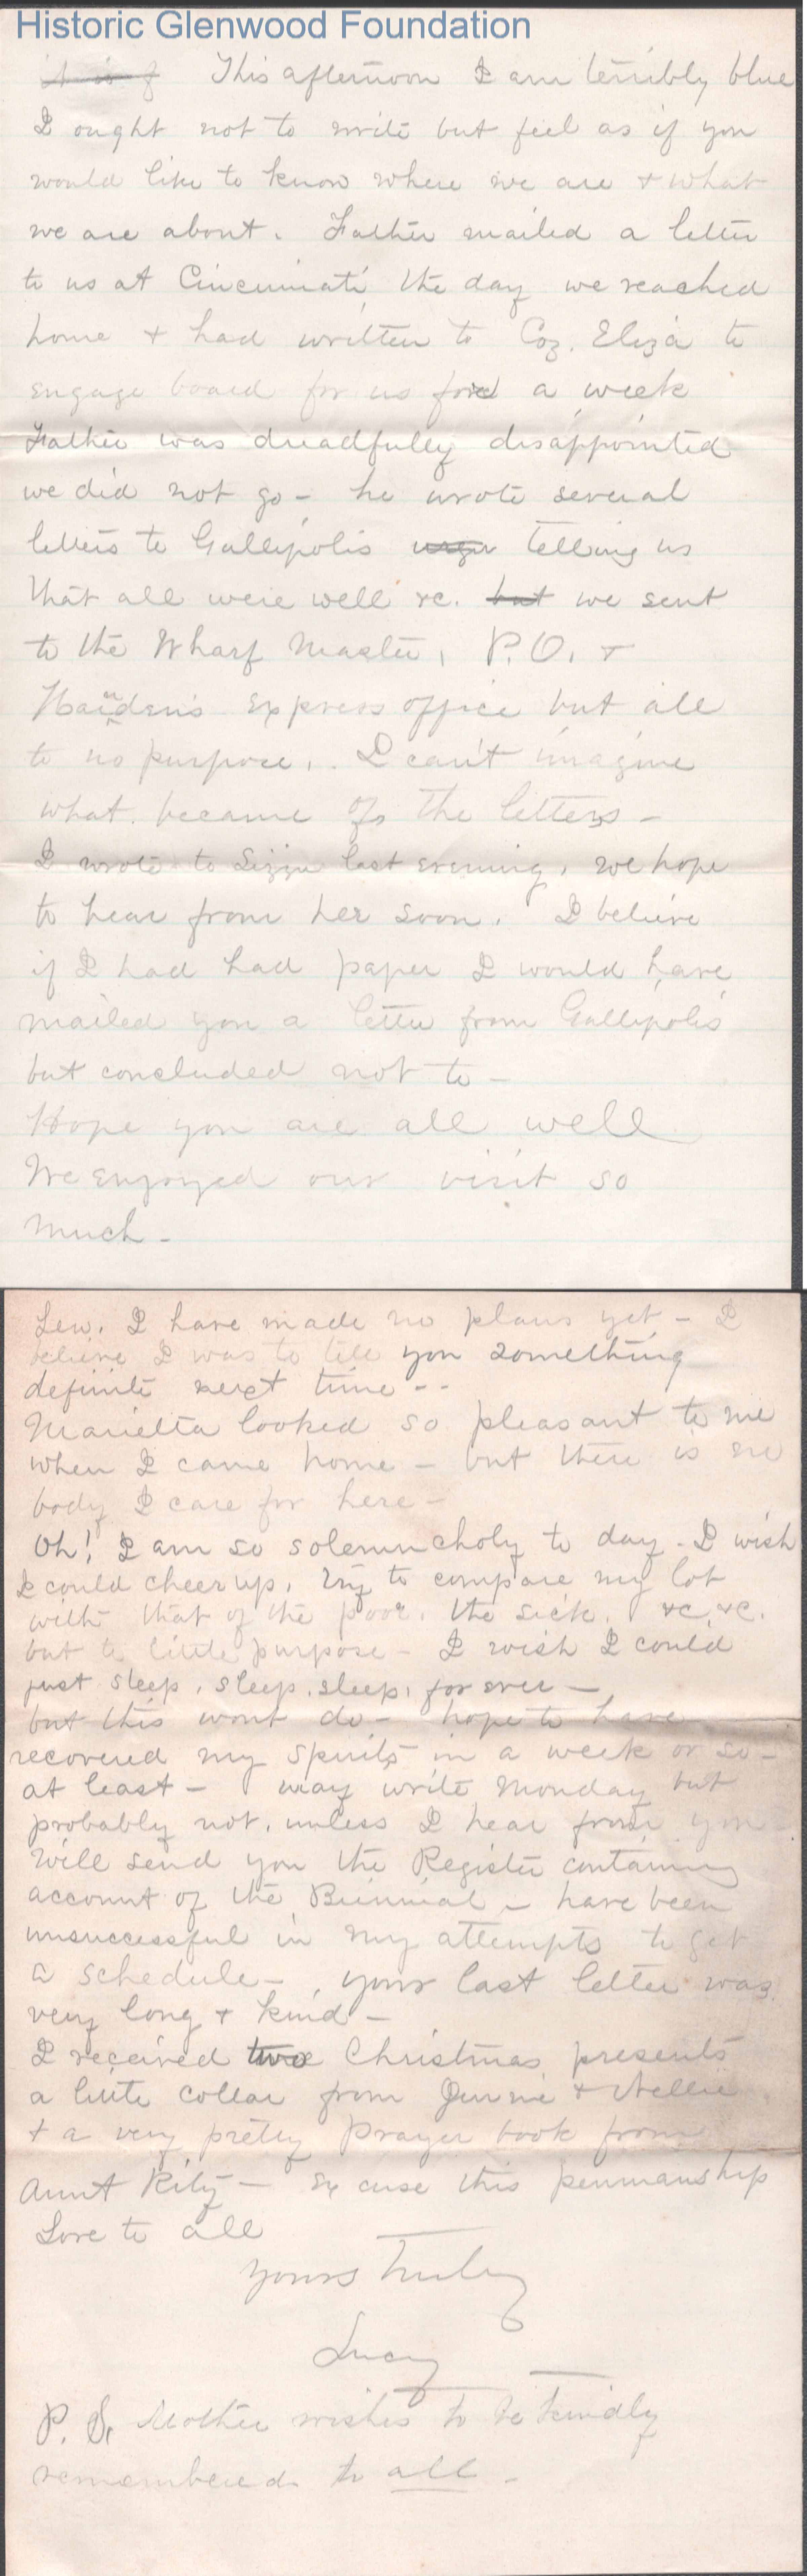 Historic Glenwood Foundation
This afternoon I am terribly blue
I ought not to write but feel as if you
would like to know where we are & what
we are about. Father mailed a letter
to us at Cincinnati the day we reached
home & had written to Coz. Eliza to
engage board for us for a week
Father was dreadfully disappointed
we did not go - he wrote several
letters to Gallipolis telling us
that all were well &c. but we sent
to the Wharf Master, P.O. &
express office but all
to no purpose. I can't imagine
what became of the letters -
I wrote to Lizzie last evening, we hope
to hear from her soon. I believe
if I had had paper I would have
mailed you a letter from Gallipolis
but concluded not to -
Hope you are all well
We enjoyed our visit so
much -
Lew. I have made no plans yet - I
believe I was to tell you something
definite next time --
Marietta looked so pleasant to me
when I came home - but there is no
body I care for here -
Oh! I am so solemncholy to day - I wish
I could cheer up. Try to compare my lot
with that of the poor, the sick, &c, &c.
but to little purpose - I wish I could
just sleep, sleep, sleep, for ever -
but this wont do - hope to have
recovered my spirits in a week or so -
at least - may write Monday but
probably not, unless I hear from you
Will send you the Register containing
account of the Biennial - have been
unsuccessful in my attempts to get
a schedule - your last letter was
very long & kind -
I received two Christmas presents
a little collar from Jennie & Nellie
& a very pretty Prayer book from
Aunt Kity - Excuse this penmanship
Love to all
Yours Truly
Lucy
P.S. Mother wishes to be kindly
remembered to all -